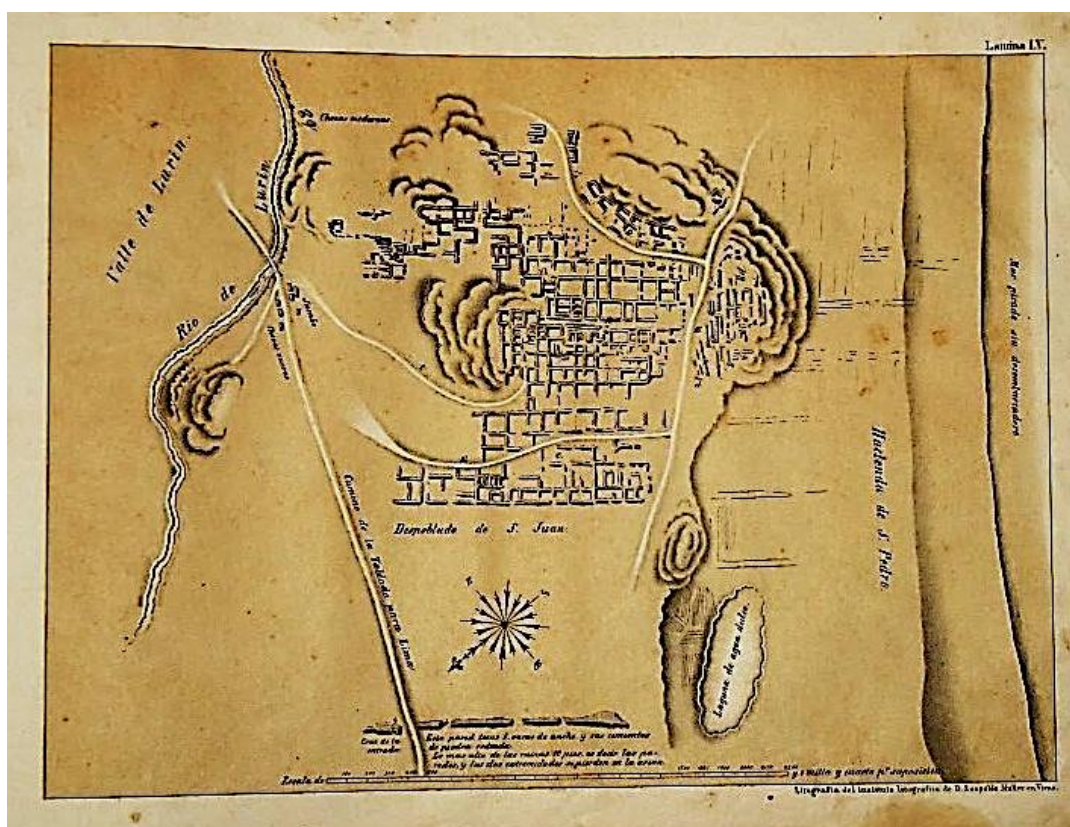 Lamina LV.
Chozas modernas.
Valle de Lurin.
Rio de Lurin.
Mar picado sin desembarcadero
Hacienda de S. Pedro.
Camino de la Tablada para Lima
Despoblado de S. Juan.
Laguna de agua dulce.
Cruz de la
entrada
Esta pared tiene 5 varas de ancho y sus cimientos
de piedra rodada.
Lo mas alto de las ruinas 10 pies, es decir las pa-
redes, y las dos extremidades se pierden en la arena.
Escala de
y 1 milla y cuarta pr. suposicion.
Litografia del Instituto litografico de D. Leopoldo Müller en Viena.